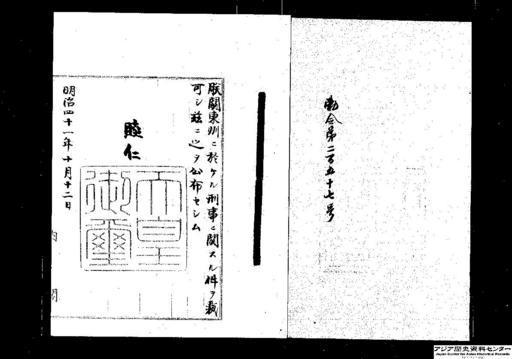 勅令第二百五十七号
朕関東州ニ於ケル刑事ニ関スル件ヲ裁
可シ茲ニ之ヲ公布セシム
睦仁
天皇御璽
明治四十一年十月十二日
内閣
アジア歴史資料センター
Japan Center for Asian Historical Records